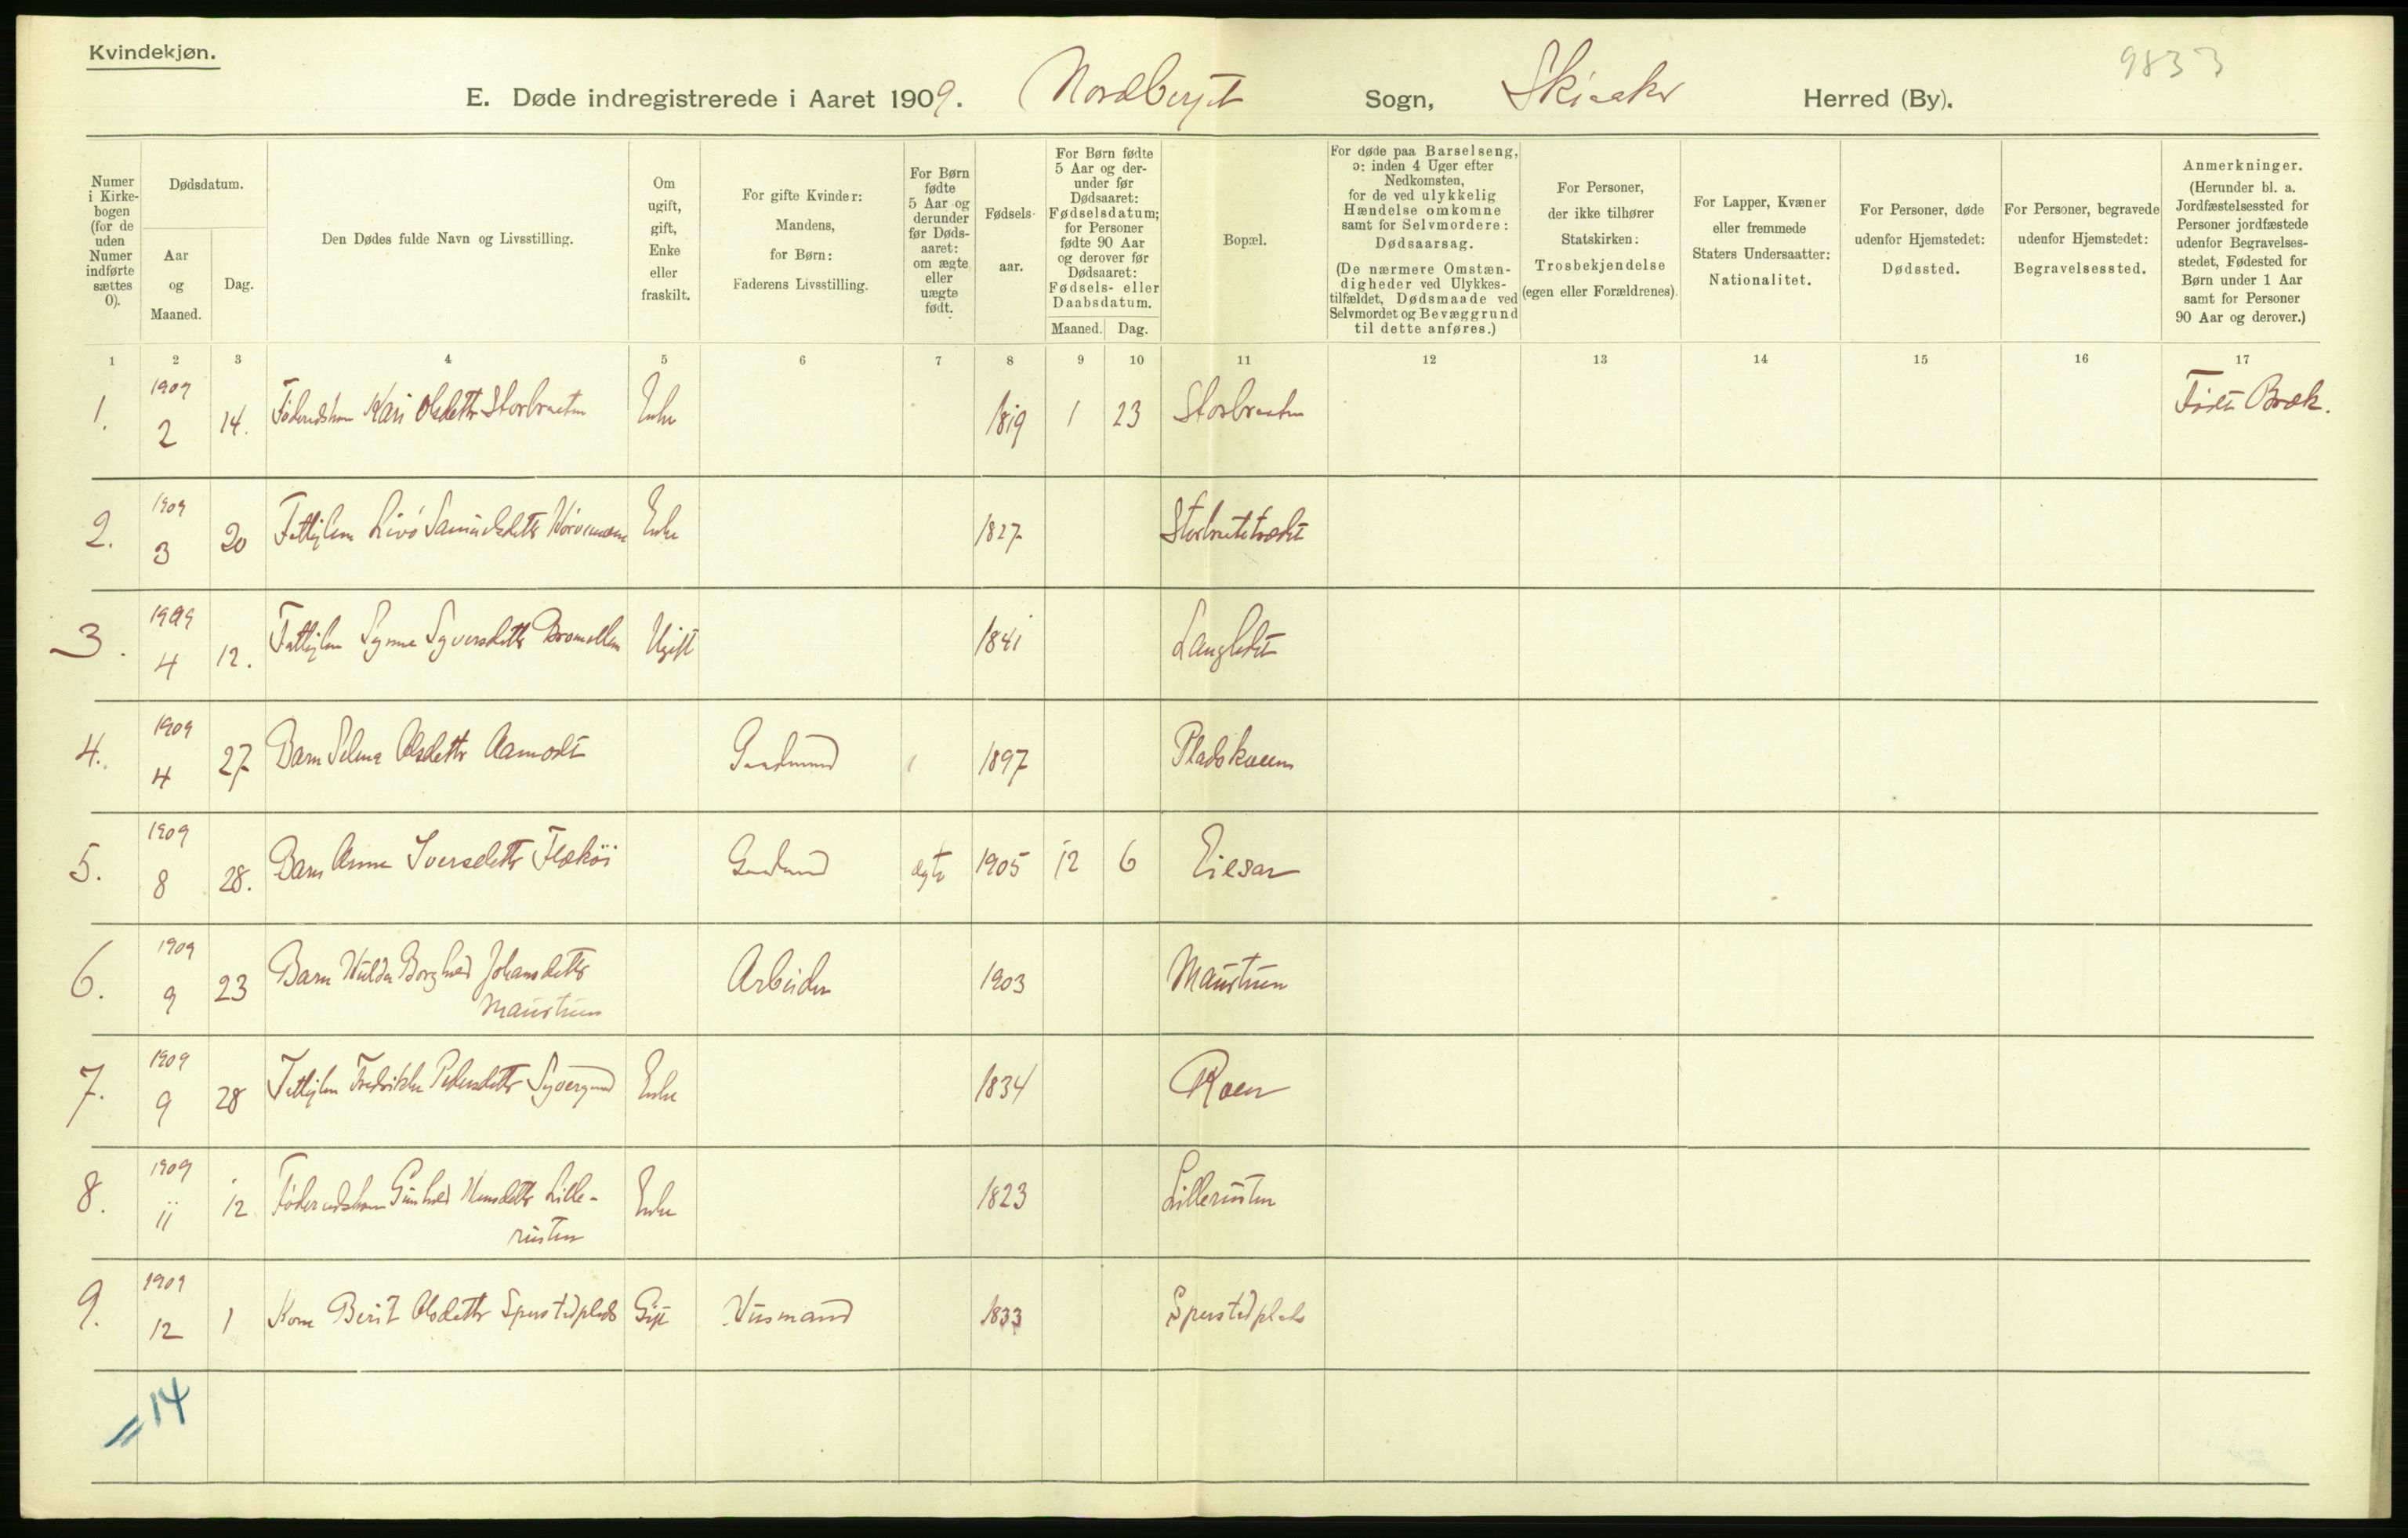 Kvindekjøn.
9833
E. Døde indregistrerede i Aaret 1909. Nordberget Sogn, Skiaaker Herred (By).
Numer i Kirkebogen (for de uden Numer indførte sættes 0).
Dødsdatum.
Aar og Maaned.
Dag.
Den Dødes fulde Navn og Livsstilling.
Om ugift, gift, Enke eller fraskilt.
For gifte Kvinder: Mandens, for Børn: Faderens Livsstilling.
For Børn fødte 5 Aar og derunder før Dødsaaret: om ægte eller uægte født.
Fødselsaar.
For Børn fødte 5 Aar og derunder før Dødsaaret: Fødselsdatum; for Personer fødte 90 Aar og derover før Dødsaaret: Fødsels- eller Daabsdatum.
Maaned. Dag.
Bopæl.
For døde paa Barselseng, ɔ: inden 4 Uger efter Nedkomsten, for de ved ulykkelig Hændelse omkomne samt for Selvmordere: Dødsaarsag.
(De nærmere Omstændigheder ved Ulykkestilfældet, Dødsmaade ved Selvmordet og Bevæggrund til dette anføres.)
For Personer, der ikke tilhører Statskirken: Trosbekjendelse (egen eller Forældrenes).
For Lapper, Kvæner eller fremmede Staters Undersaatter: Nationalitet.
For Personer, døde udenfor Hjemstedet: Dødssted.
For Personer, begravede udenfor Hjemstedet: Begravelsessted.
Anmerkninger.
(Herunder bl. a. Jordfæstelsessted for Personer jordfæstede udenfor Begravelsesstedet, Fødested for Børn under 1 Aar samt for Personer 90 Aar og derover.)
1 2 3 4 5 6 7 8 9 10 11 12 13 14 15 16 17
1. 1909 2 14. Føderadskone Kari Olsdatter Storbraaten Enke 1819 1 23 Storbraaten Født Bræk.
2. 1909 3 20 Fattiglem Livø Samuelsdatter Enke 1827
3. 1909 4 12. Fattiglem Synne Syversdatter Ugift 1841 Langledet
4. 1909 4 27 Barn Selma Olsdatter Aamodt Gaardmand 1897
5. 1909 8 28. Barn Anne Iversdatter Flækøi Gaardmand ægte 1905 12 6
6. 1909 9 23 Barn Hulda Borghild Johansdatter
Maurtuen Arbeider 1903 Maurtuen
7. 1909 9 28 Fattiglem Fredrikke Pedersdatter Enke 1834 Roen
8. 1909 11 12 Føderadskone Gunhild Lille-
rusten Enke 1823 Lillerusten
9. 1909 12 1 Kone Berit Olsdatter Sperstadplads Gift Husmand 1833 Sperstadplads
14